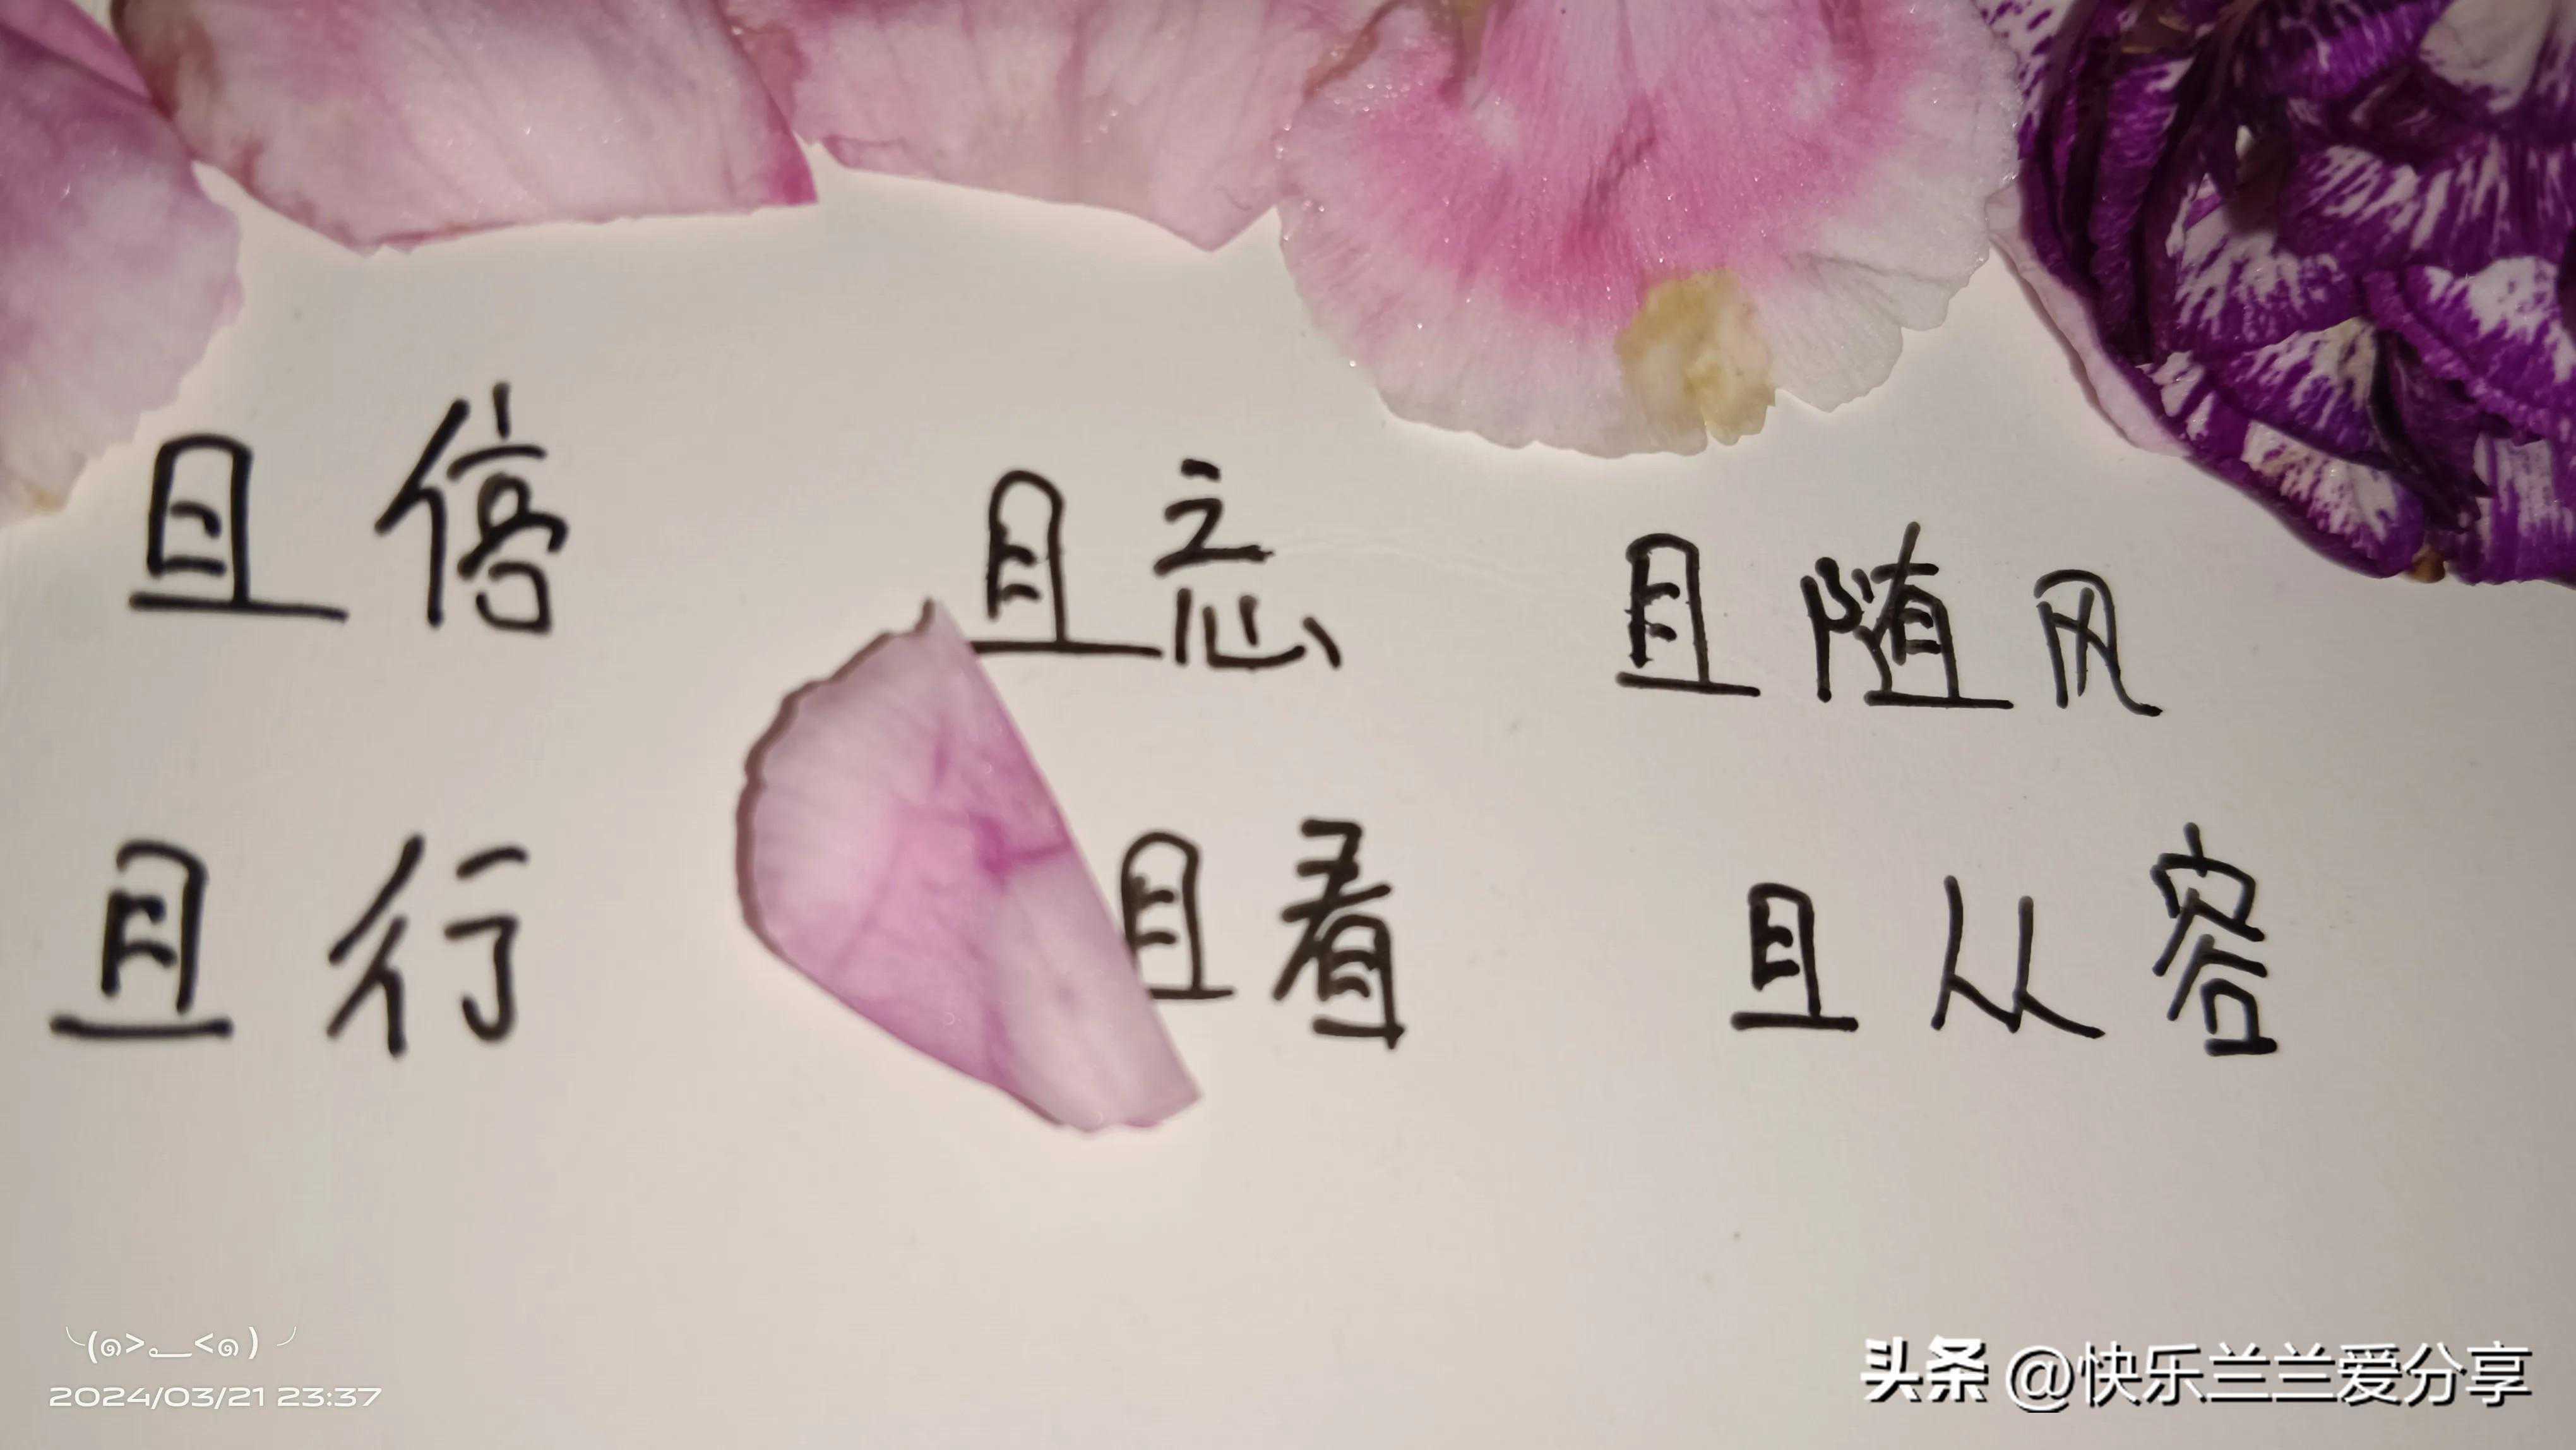 且停 且忘 且随风
且行 且看 且从容
╰(๑>؂<๑)╯
2024/03/21 23:37
头条 @快乐兰兰爱分享